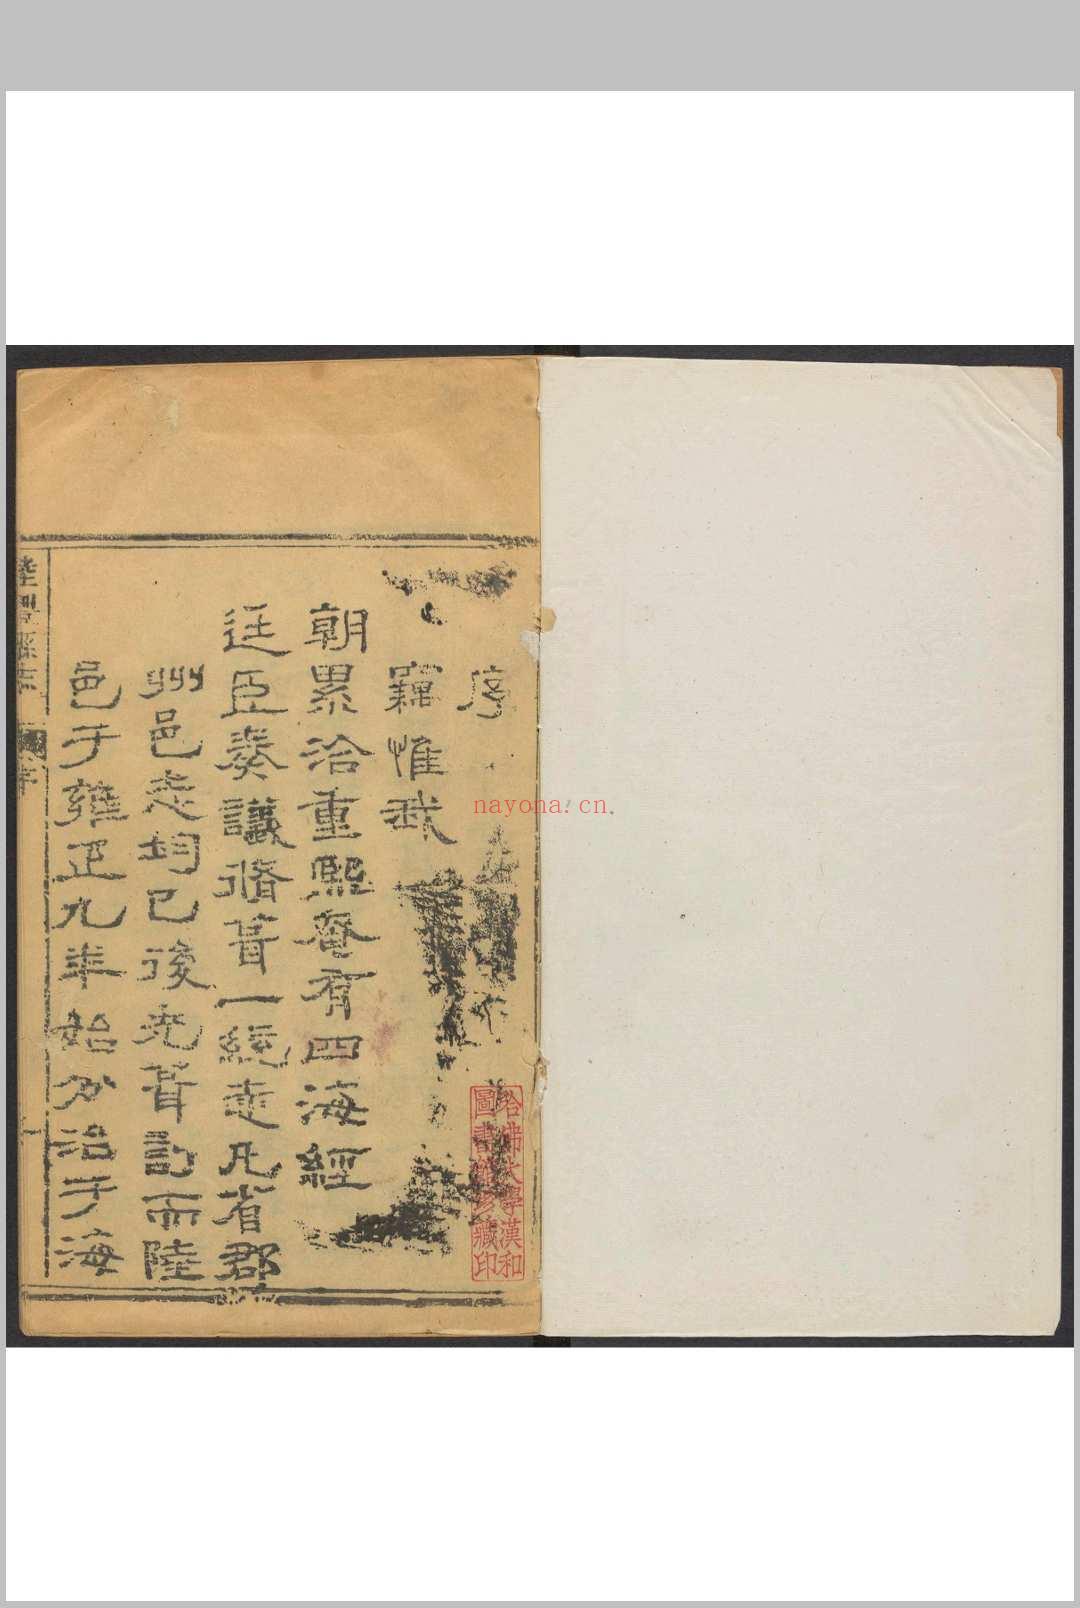 序
竊惟我
朝累洽重熙奄有四海經
廷臣奏議脩葺一統志凡省郡
州邑志均已後先葺訂而陸
邑于雍正九年始分治于海
陸豐縣志
序
一
哈佛大學漢和
圖書館珍藏印
nayona.cn